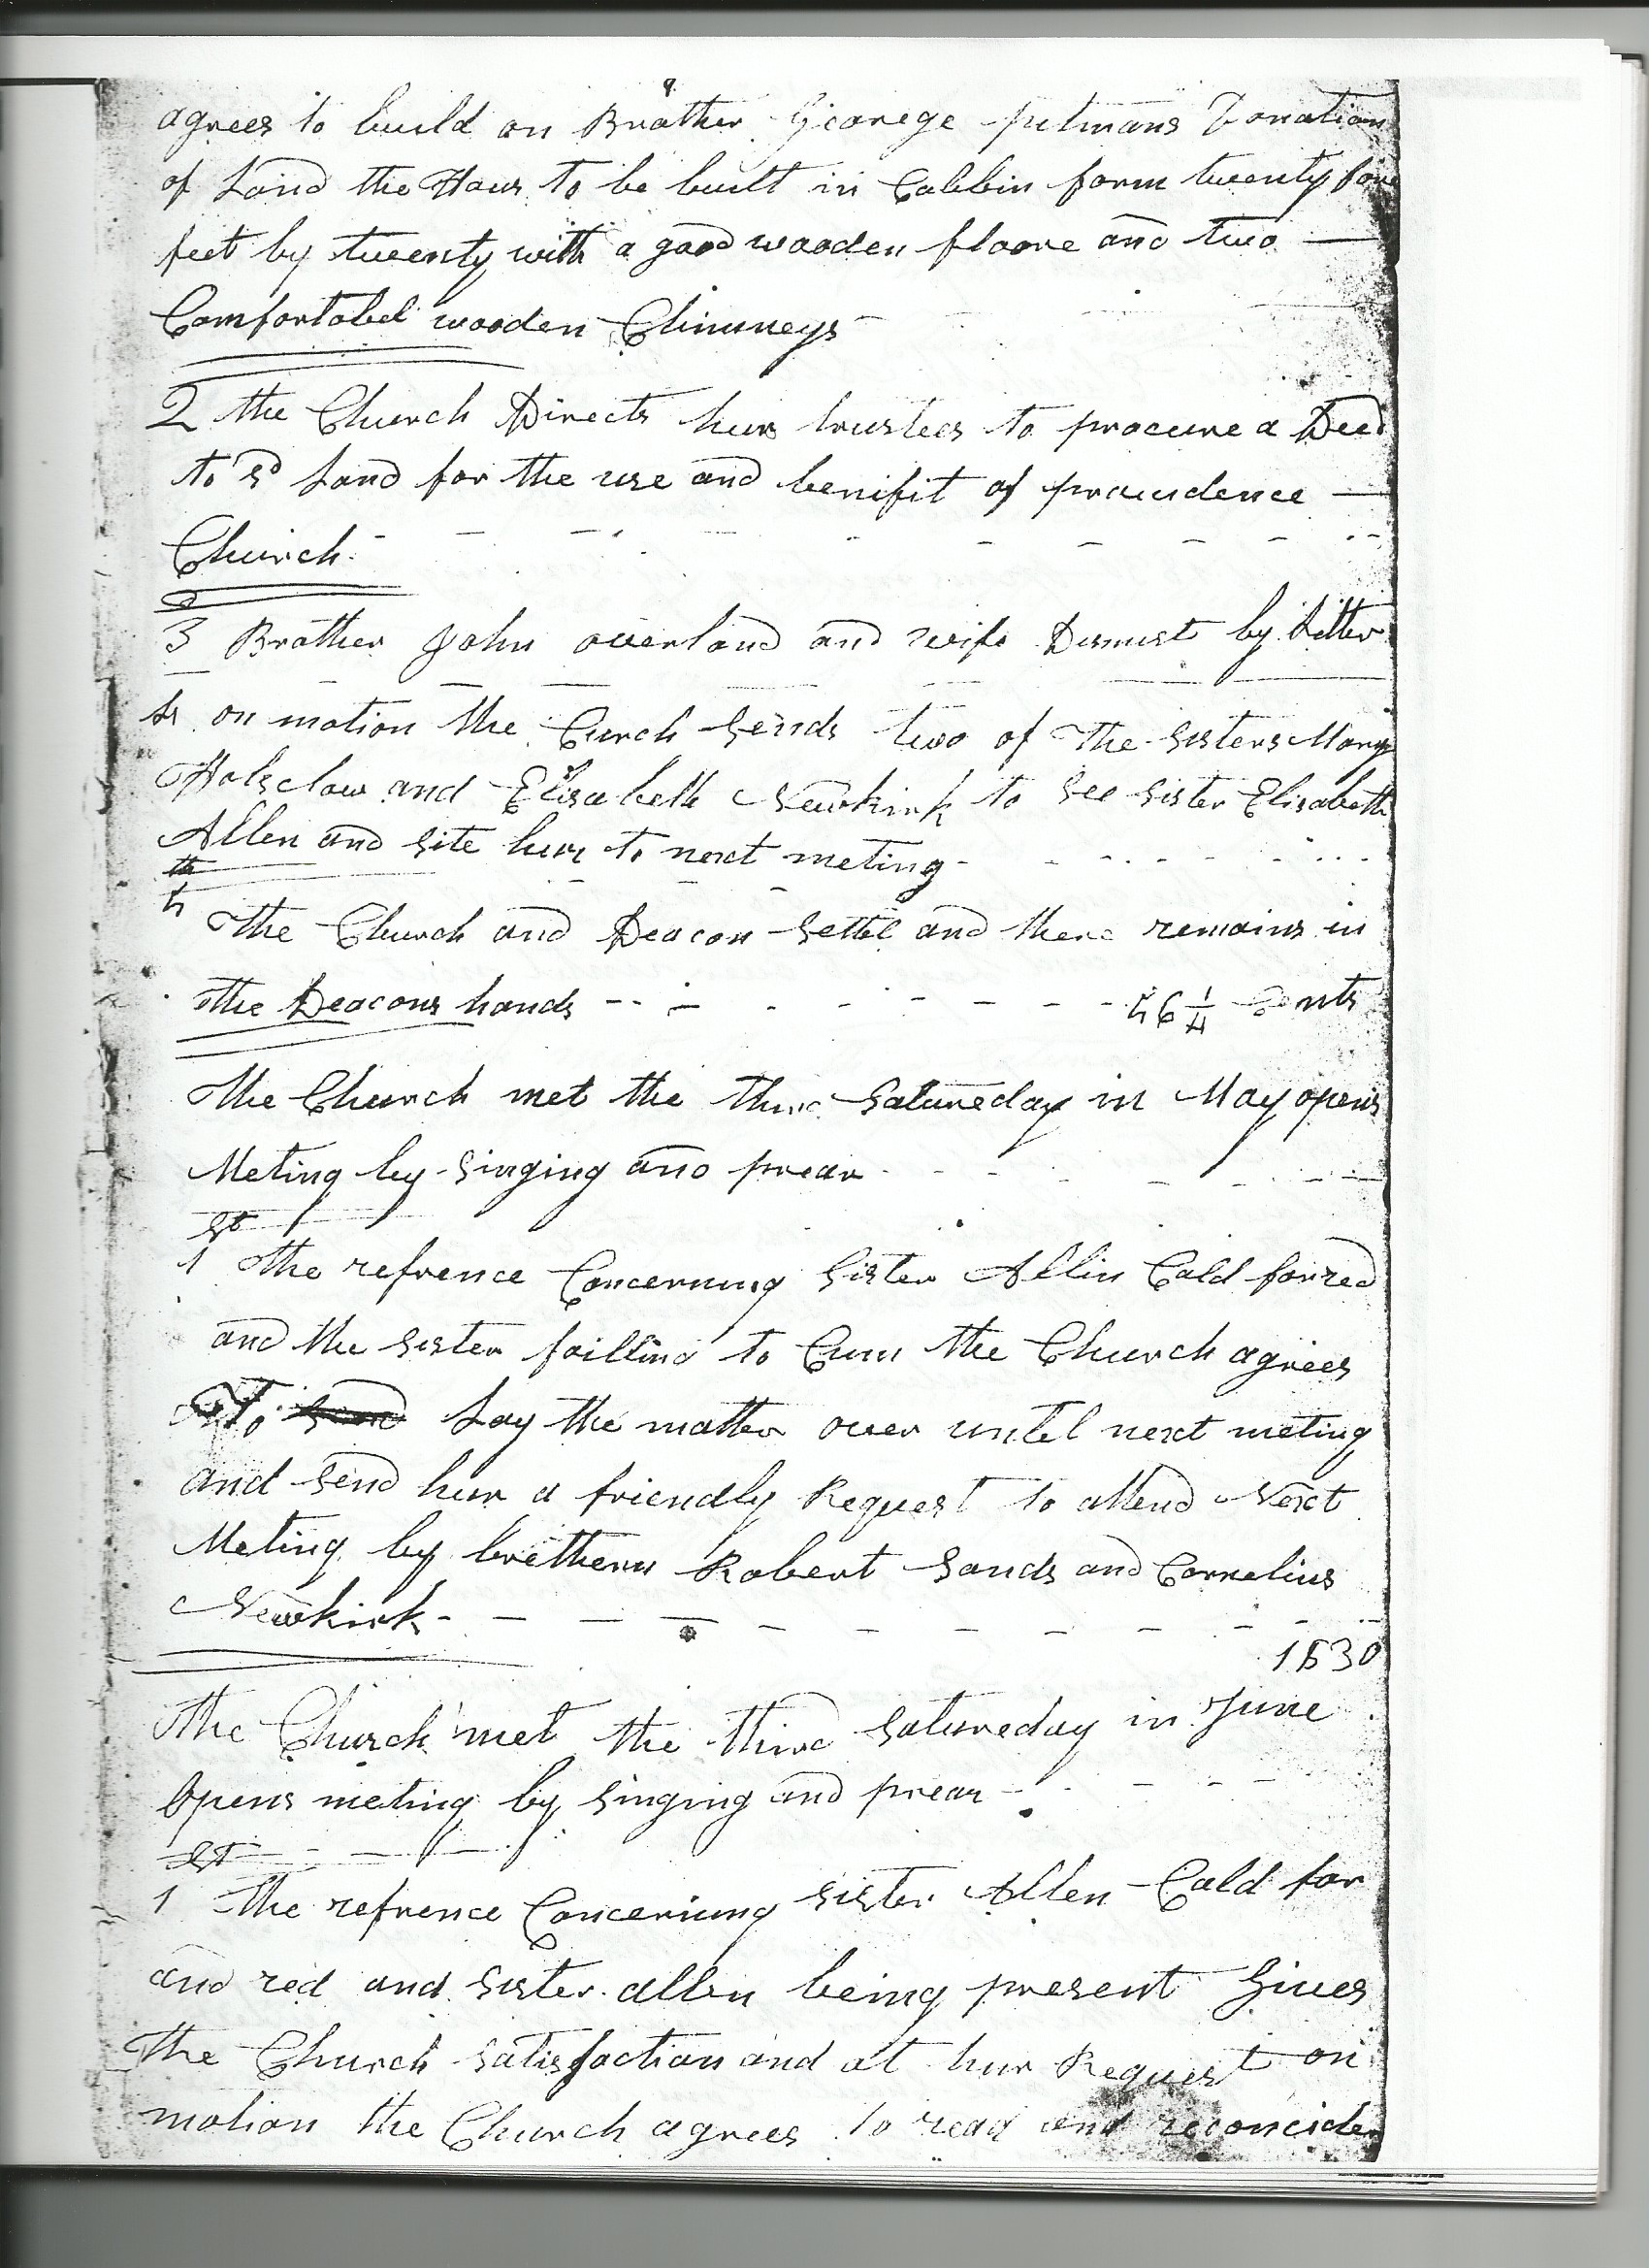 agrees to build on Brother Georege pitmans Donation
of Land the Hous to be built in Cabbin form twenty four
feet by tweenty with a good wooden floore and two
Comfortabel wooden Chimneys
2 the Church Directs hur trustees to procure a Deed
to sd Land for the use and benifit of providence
Church
3 Brother John overland and wife Dismist by Letter
4 on motion the Curch Sends two of the Sisters Mary
Holsclaw and Elisabeth Newkirk to See Sister Elisabeth
Allen and Site hur to next meting
th
5 The Church and Deacon Settel and there remains in
the Deacons hands 56 1/4 Cents
The Church met the third Satureday in May opens
Meting by Singing and prear
st
1 The refrence Concerning Sister Allin Cald for red
and the Sister failling to Cum the Church agrees
To Send Lay the matter over untel next meting
and Send hur a friendly Request to attend Next
Meting by brethern Robert Sands and Cornelius
Newkirk
1830
The Church met the third Satureday in June
Opens meting by Singing and prear
st
1 The refrence Concerning Sister Allen Cald for
and red and Sister allen being present Gives
the Church Satisfaction and at hur Request on
motion the Church agrees to read and reconcider